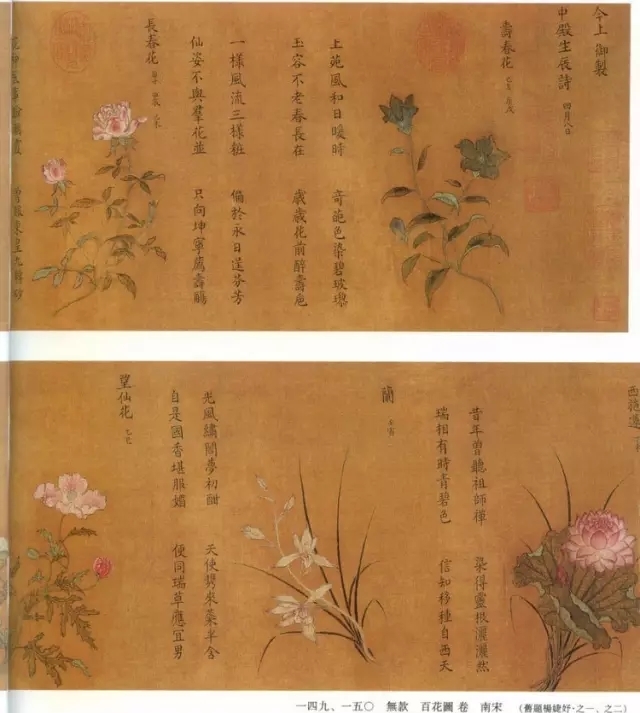 今上御製
中殿生辰詩 四月八日
壽春花
上苑風和日暖時 奇葩色染碧玻瓈
玉容不老春長在 歲歲花前醉壽卮
長春花
一樣風流三樣粧 偏於永日逞芬芳
仙姿不與羣花並 只向坤寧薦壽觴
昔年曾聽祖師禪 染得靈根灑灑然
瑞相有時青碧色 信知移種自西天
蘭
光風繡闥夢初酣 天使攜來蘂半含
自是國香堪服媚 便同瑞草應宜男
望仙花
一四九、一五〇 無款 百花圖 卷 南宋 (舊題楊婕妤·之一、之二)